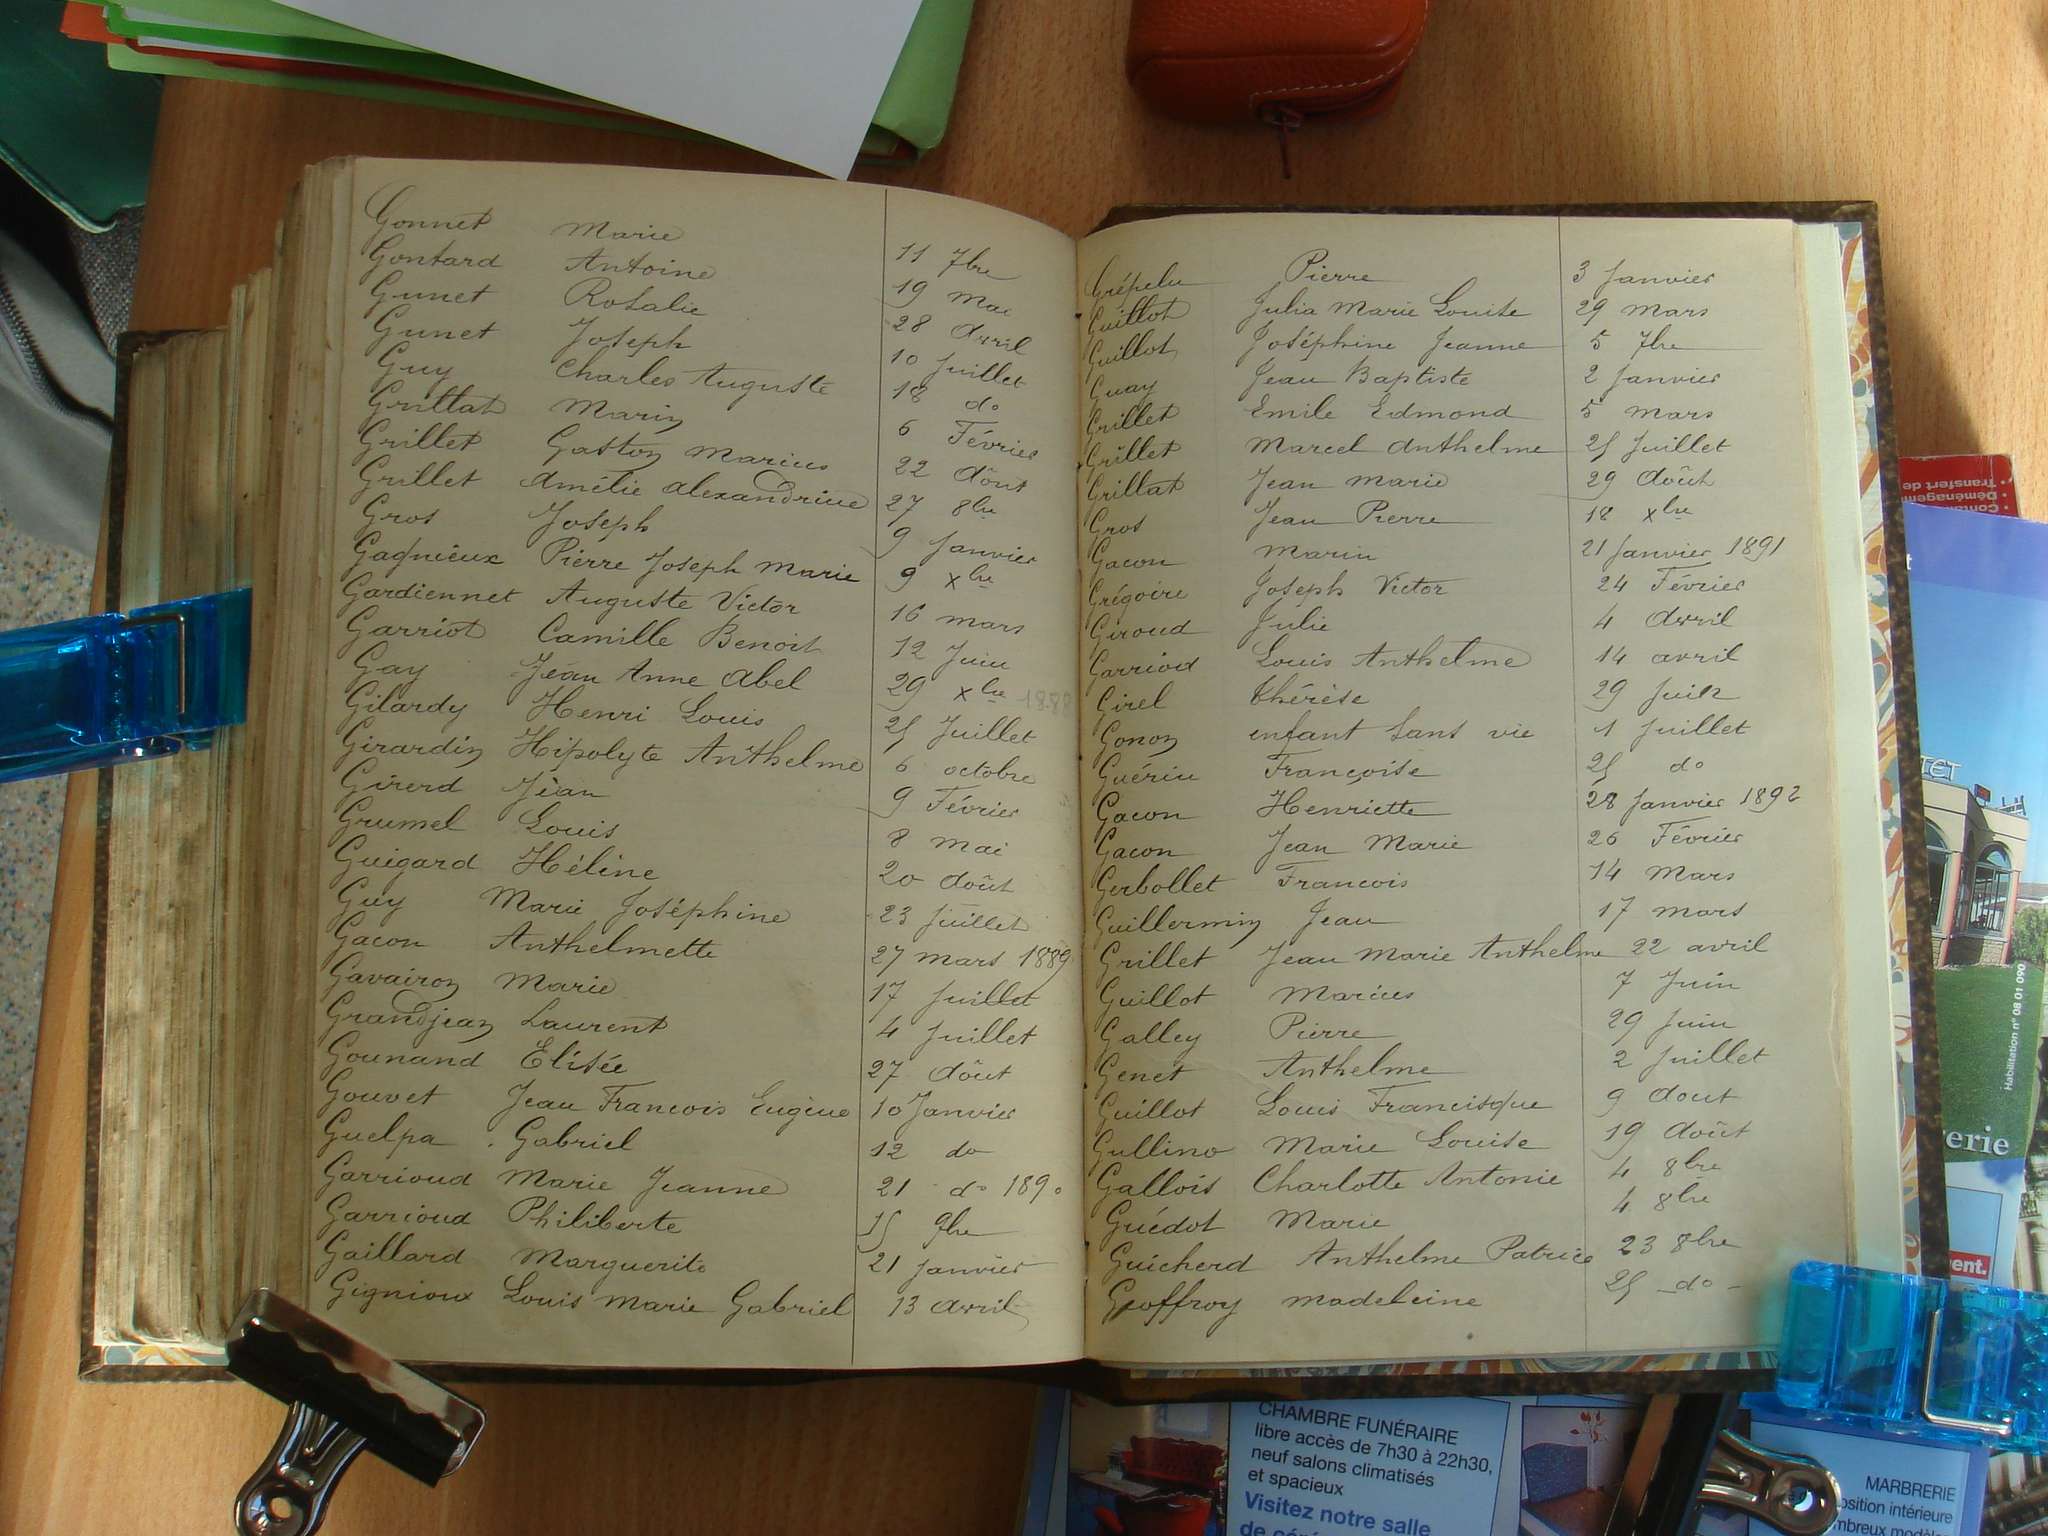 Gonnet Marie 11 7bre
Gontard Antoine 19 Mai
Gunet Rosalie 28 Avril
Gunet Joseph 10 Juillet
Guy Charles Auguste 18 do
Grillat Marin 6 Février
Grillet Gaston Marius 22 Août
Grillet Amélie Alexandrine 27 8bre
Gros Joseph 9 Janvier
Gagnieux Pierre Joseph Marie 9 xbre
Gardiennet Auguste Victor 16 mars
Garriot Camille Benoit 12 Juin
Gay Jean Anne Abel 29 xbre 1888
Gilardy Henri Louis 25 Juillet
Girardin Hipolyte Anthelme 6 octobre
Girerd Jean 9 Février
Grumel Louis 8 mai
Guigard Héline 20 Août
Guy Marie Joséphine 23 Juillet
Gacon Anthelmette 27 mars 1889
Gavairon Marie 17 Juillet
Grandjean Laurent 4 Juillet
Gounand Elisée 27 Août
Gouvet Jean François Eugène 10 Janvier
Guelpa Gabriel 12 do
Garrioud Marie Jeanne 21 do 1890
Garrioud Philiberte 15 9bre
Gaillard Marguerite 21 Janvier
Gignioux Louis Marie Gabriel 13 Avril
Crépelu Pierre 3 Janvier
Guillot Julia Marie Louise 29 mars
Guillot Joséphine Jeanne 5 7bre
Guay Jean Baptiste 2 Janvier
Grillet Emile Edmond 5 mars
Grillet Marcel Anthelme 25 Juillet
Grillat Jean Marie 29 Août
Gros Jean Pierre 18 xbre
Gacon Marin 21 Janvier 1891
Grégoire Joseph Victor 24 Février
Giroud Julie 4 Avril
Garrioud Louis Anthelme 14 avril
Girel thérèse 29 Juin
Gonon enfant sans vie 1 Juillet
Guérin Françoise 25 do
Gacon Henriette 28 Janvier 1892
Gacon Jean Marie 26 Février
Gerbollet François 14 Mars
Guillermin Jean 17 mars
Grillet Jean Marie Anthelme 22 avril
Guillot Marius 7 Juin
Galley Pierre 29 Juin
Genet Anthelme 2 Juillet
Guillot Louis Francisque 9 Aout
Gullino Marie Louise 19 Août
Gallois Charlotte Antonie 4 8bre
Guédot Marie 4 8bre
Guicherd Anthelme Patrice 23 8bre
Geoffroy Madeleine 25 do
Déménagem
Transfert de
TET
Habilitation n° 08 01 090
erie
ent.
CHAMBRE FUNÉRAIRE
libre accès de 7h30 à 22h30,
neuf salons climatisés
et spacieux
Visitez notre salle
MARBRERIE
position intérieure